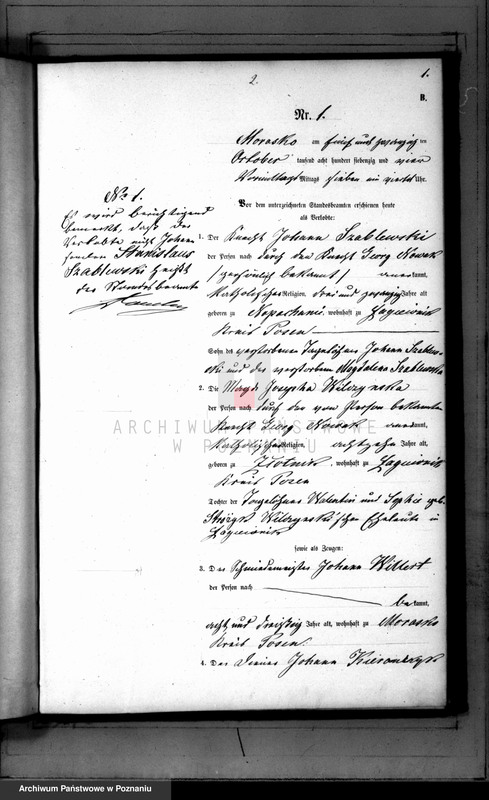 2.
1.
B.
Nr. 1.
Morasko am fünf und zwanzig ten
October tausend acht hundert siebenzig und vier
Vormittags Mittags sieben ein viertel Uhr.
Vor dem unterzeichneten Standsbeamten erschienen heute
als Verlobte:
1. Der Knecht Johann Szablewski
der Person nach durch den Knecht Georg Nowak
(persönlich bekannt) anerkannt,
katholischer Religion, drei und zwanzig Jahre alt
geboren zu wohnhaft zu
Kreis Posen
Sohn des verstorbenen Tagelöhner Johann Szablew-
ski und der verstorbenen Magdalena Szablewska
2. Die Magd Josepha Wilczynska
der Person nach durch den von Person bekannten
Knecht Georg Nowak anerkannt,
katholischer Religion, achtzehn Jahre alt,
geboren zu Zlotnik, wohnhaft zu
Kreis Posen
Tochter der Tagelöhner Valentin und Sophie geb.
Wilczynski'schen Eheleute in
sowie als Zeugen:
3. Der Schmiedemeister Johann Willert
der Person nach
bekannt,
acht und dreißig Jahre alt, wohnhaft zu Morasko
Kreis Posen.
4. Der Diener Johann
No 1.
Es wird berichtigend
bemerkt, daß der
Verlobte nicht Johann
sondern Stanislaus
Szablewski heißt
der Standesbeamte
ARCHIWUM PAŃSTWOWE
W POZNANIU
Archiwum Państwowe w Poznaniu